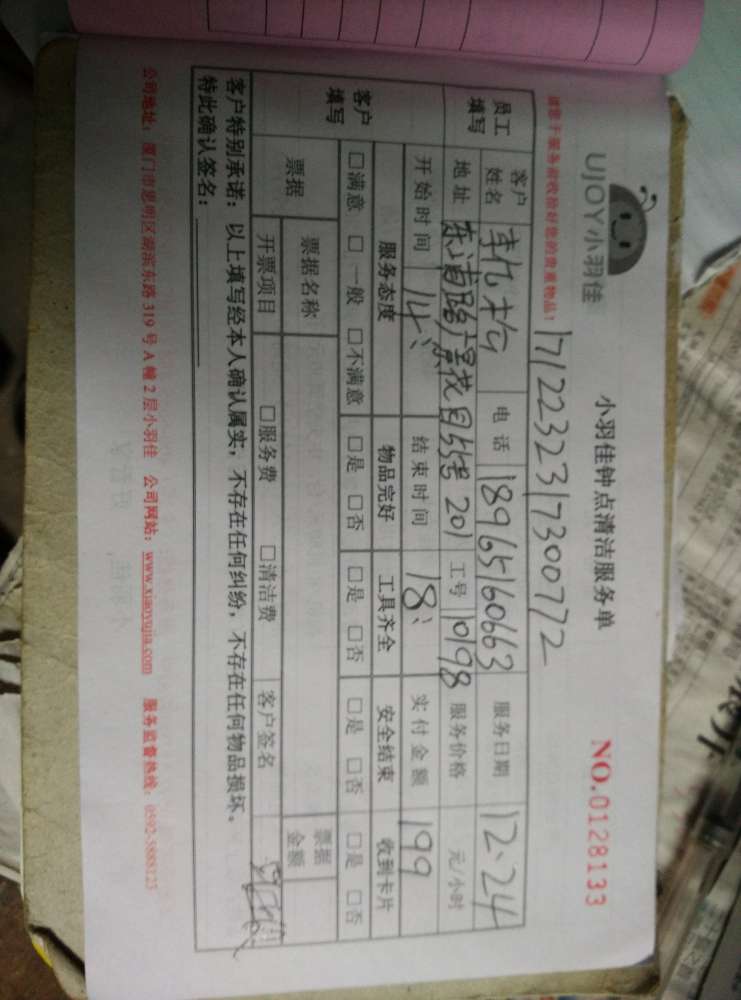 UJOY小羽佳
小羽佳钟点清洁服务单
NO.0128133
请您于服务前收拾好您的贵重物品!
1712232317300772
员工填写
客户姓名 李 电话 18965160663 服务日期 12、24
地址 东浦路 号 201 工号 10198 服务价格 元/小时
开始时间 14: 结束时间 18: 实付金额 199
客户填写
服务态度 物品完好 工具齐全 安全结束 收到卡片
□满意 □一般 □不满意 □是 □否 □是 □否 □是 □否 □是 □否
票据 票据名称 票据金额
开票项目 □服务费 □清洁费 客户签名
客户特别承诺:以上填写经本人确认属实,不存在任何纠纷,不存在任何物品损坏。
特此确认签名:
公司地址:厦门市思明区湖滨东路319号A幢2层小羽佳 公司网站:www.xiaoyujia.com 服务监督热线:0592-5888123